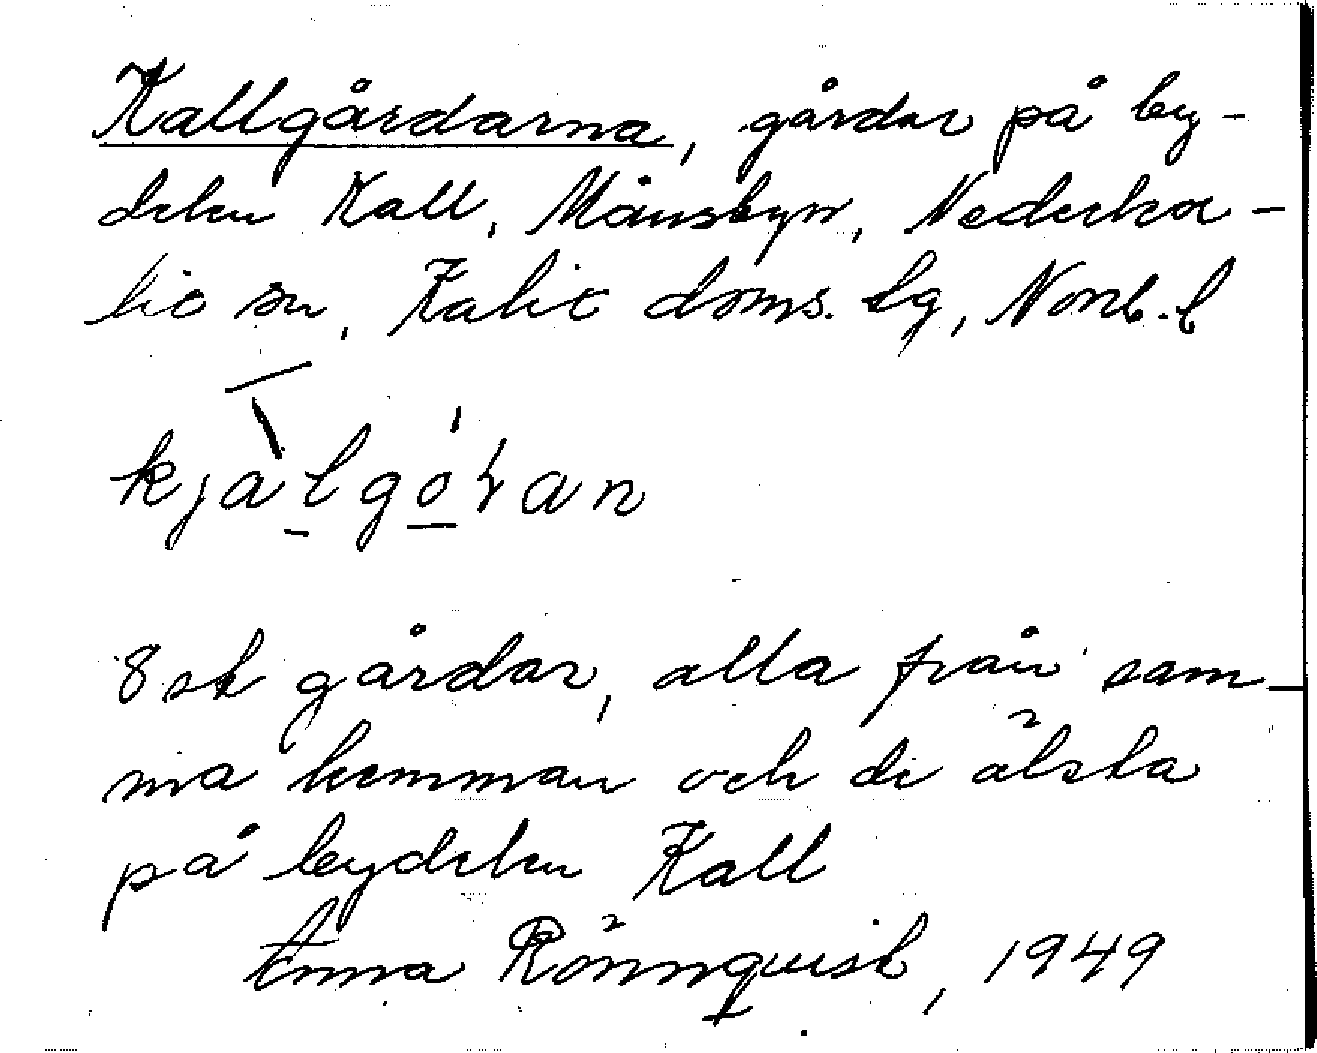 Kallgårdarna, gårdar på by-
delen Kall, Månsbyn, Nederka-
lix sn, Kalix doms. lg, Norrb. l
kjàlgó'ṛan
8 st gårdar, alla från sam-
ma hemman och de älsta
på bydelen Kall
Anna Rönnquist, 1949